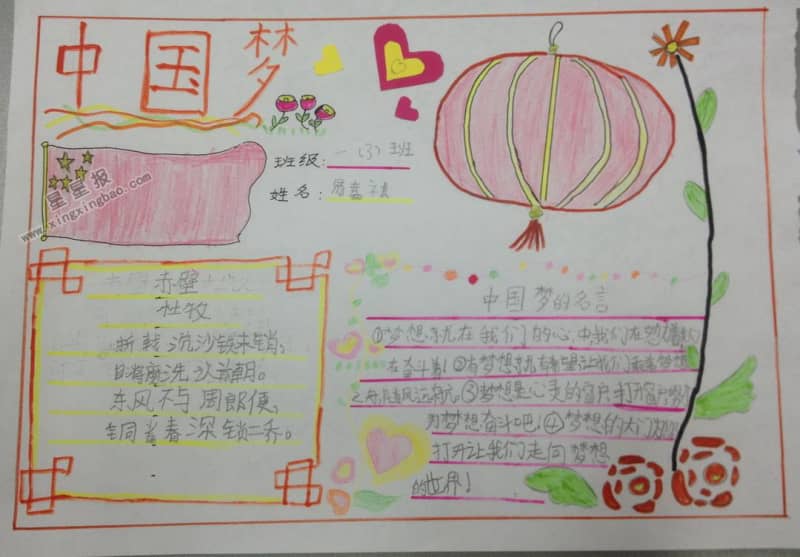 中国梦
星星报
www.xingxingbao.com
班级: 一(3)班
姓名:
赤壁
杜牧
折戟沉沙铁未销,
自将磨洗认前朝。
东风不与周郎便,
铜雀春深锁二乔。
中国梦的名言
①梦想就在我们的心中我们在努力
在奋斗着!②有梦想就有希望让我们
③梦想是心灵的窗户打开窗户
为梦想奋斗吧,④梦想的大门
打开让我们走向梦想
的世界!